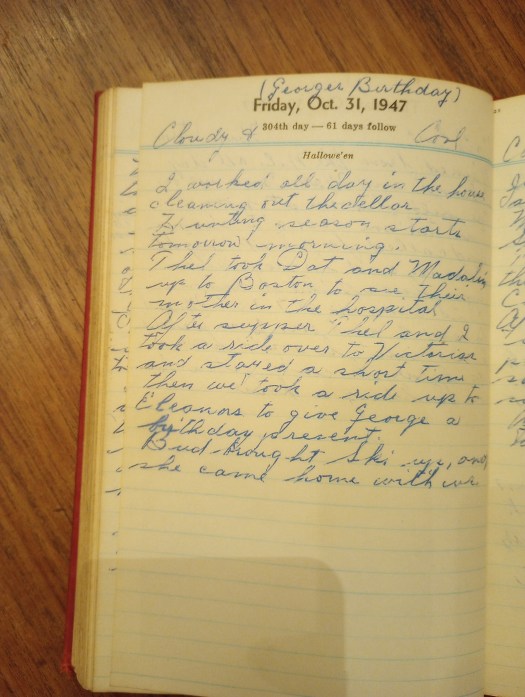 (Georges Birthday)
Friday, Oct. 31, 1947
304th day — 61 days follow
Cloudy & Cool
Hallowe'en
I worked all day in the house
cleaning out the cellar
Hunting season starts
tomorrow morning.
Thel took Dot and Madalin
up to Boston to see their
mother in the hospital
After supper Thel and I
took a ride over to Victorias
and stayed a short time
then we took a ride up to
Eleanors to give George a
birthday present.
Bud brought Ski up, and
she came home with us